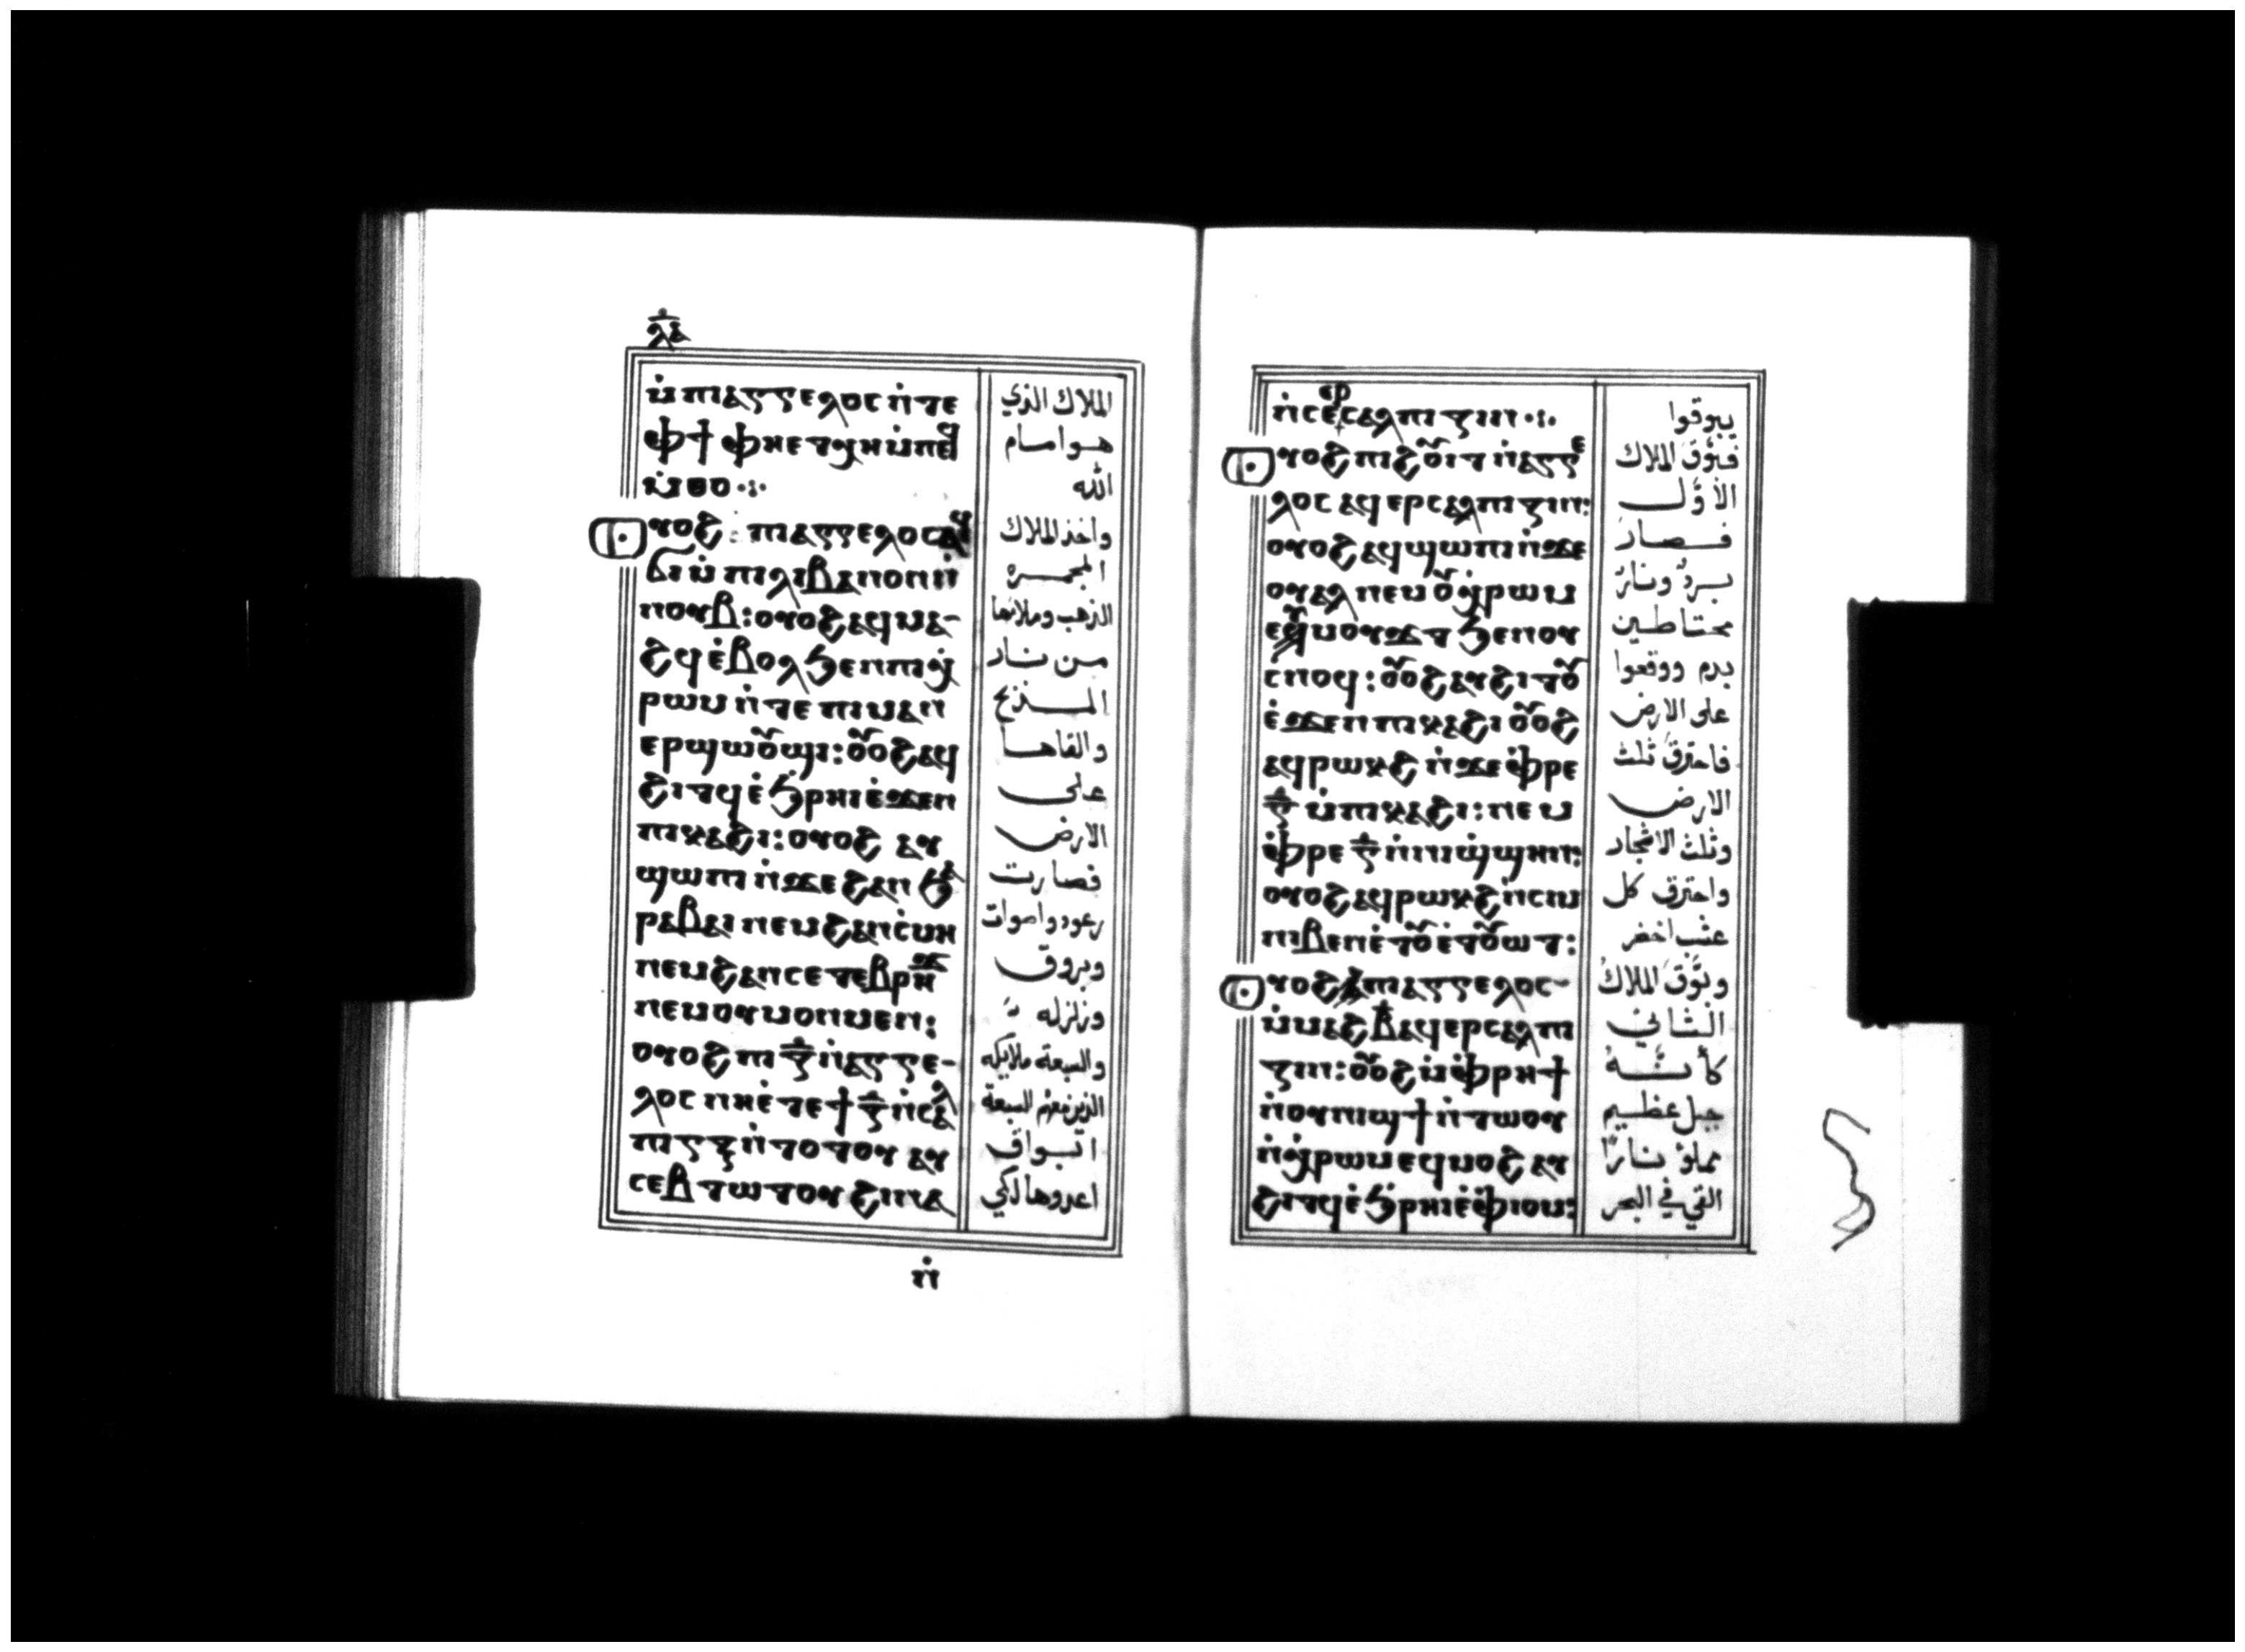 ⲗⲁ̅
ⲙ̇ⲡⲓⲁⲅⲅⲉⲗⲟⲥ ⲛ̇ⲧⲉ
ⲫϯ ⲫⲏⲉⲧⲭⲏ ⲙ̇ⲡⲉϥ
ⲙ̇ⲑⲟ
ⲟⲩⲟϩ ⲡⲓⲁⲅⲅⲉⲗⲟⲥ ⲁϥ
ϭⲓ ⲙ̇ⲡⲓⲗⲓⲃⲁⲛⲟⲛ ⲛ̇
ⲛⲟⲩⲃ: ⲟⲩⲟϩ ⲁϥⲙⲁ-
ϩϥ ⲉ̇ⲃⲟⲗ ϧⲉⲛ ⲡⲓⲭ̇
ⲣⲱⲙ ⲛ̇ⲧⲉ ⲡⲓⲙⲁⲛ
ⲉⲣϣⲱⲟⲩϣⲓ: ⲟⲩⲟϩ ⲁϥ
ϩⲓⲧϥ ⲉ̇ϧⲣⲏⲓ ⲉ̇ϫⲉⲛ
ⲡⲓⲕⲁϩⲓ: ⲟⲩⲟϩ ⲁⲩ
ϣⲱⲡⲓ ⲛ̇ϫⲉ ϩⲁⲛ ϧⲁ
ⲣⲁⲃⲁⲓ ⲛⲉⲙ ϩⲁⲛⲥ̇ⲙⲏ
ⲛⲉⲙ ϩⲁⲛⲥⲉⲧⲉⲃⲣⲏϫ
ⲛⲉⲙ ⲟⲩⲙⲟⲛⲙⲉⲛ:
ⲟⲩⲟϩ ⲡⲓⲍ̅ ⲛ̇ⲁⲅⲅⲉ-
ⲗⲟⲥ ⲛⲏⲉ̇ⲧⲉ ϯⲍ̅ ⲛ̇ⲥⲁⲗ
ⲡⲓⲅⲝ ⲛ̇ⲧⲟⲧⲟⲩ ⲁⲩ
ⲥⲉⲃⲧⲱⲧⲟⲩ ϩⲓⲛⲁ
ⲛ̇
الملاك الذي
هو امام
الله
واخذ الملاك
المجمره
الذهب وملائها
من نار
المذبح
والقاها
على
الارض
فصارت
رعود واصوات
وبروق
وزلزله
والسبعة ملايكه
الذين معهم السبعة
ابواق
اعدوها لكي
ⲛ̇ⲥⲉⲉⲣⲥⲁⲗⲡⲓⲍⲓⲛ
ⲟⲩⲟϩ ⲡⲓϩⲟⲩⲓⲧ ⲛ̇ⲁⲅⲅⲉ
ⲗⲟⲥ ⲁϥⲉⲣⲥⲁⲗⲡⲓⲍⲓⲛ:
ⲟⲩⲟϩ ⲁϥϣⲱⲡⲓ ⲛ̇ϫⲉ
ⲟⲩⲁⲗ ⲛⲉⲙ ⲟⲩⲭ̇ⲣⲱⲙ
ⲉϥⲙⲟⲩϫⲧ ϧⲉⲛ ⲟⲩ
ⲥ̇ⲛⲟϥ: ⲟⲩⲟϩ ⲁϩⲓⲧⲟⲩ
ⲉ̇ϫⲉⲛ ⲡⲓⲕⲁϩⲓ ⲟⲩⲟϩ
ⲁϥⲣⲱⲕϩ ⲛ̇ϫⲉ ⲫ̇ⲣⲉ
ⲅ̅ ⲙ̇ⲡⲓⲕⲁϩⲓ: ⲛⲉⲙ
ⲫ̇ⲣⲉ ⲅ̅ ⲛ̇ⲛⲓϣ̇ϣⲏⲛ:
ⲟⲩⲟϩ ⲁϥⲣⲱⲕϩ ⲛ̇ⲥⲓⲙ
ⲛⲓⲃⲉⲛ ⲉ̇ⲧⲟⲩⲉ̇ⲧⲟⲩⲱⲧ:
ⲟⲩⲟϩ ⲡⲓⲁⲅⲅⲉⲗⲟⲥ-
ⲙ̇ⲙⲁϩⲃ̅ ⲁϥⲉⲣⲥⲁⲗⲡⲓ
ⲍⲓⲛ: ⲟⲩⲟϩ ⲙ̇ⲫ̇ⲣⲏϯ
ⲛ̇ⲟⲩⲛⲓϣϯ ⲛ̇ⲧⲱⲟⲩ
ⲛ̇ⲭ̇ⲣⲱⲙ ⲉϥⲙⲟϩ ⲁⲩ
ϩⲓⲧϥ ⲉ̇ϧⲣⲏⲓ ⲉ̇ⲫⲓⲟⲙ:
يبوقوا
فبوّق الملاك
الاوّل
فصار
بردٌ ونارٌ
مختلطين
بدم ووقعوا
على الارض
فاحترق ثلث
الارض
وثلث الاشجار
واحترق كل
عشب اخضر
وبوّق الملاك
الثاني
كأنّه
جبل عظيم
مملوّ نارًا
القي في البحر